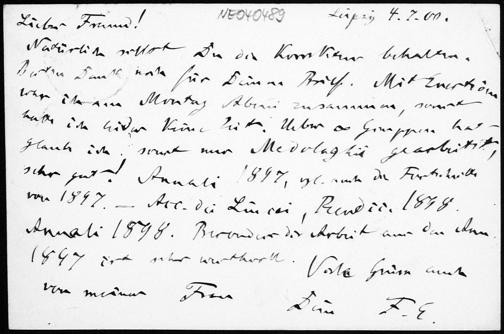 NE040489
Lieber Freund! Leipzig 4.7.00.
Natürlich sollst Du die Korrektur behalten.
Besten Dank noch für Deinen Brief. Mit Eneström
war ich am Montag Abend zusammen, sonst
hatte ich leider keine Zeit. Über ∞ Gruppen hat,
glaub ich, sonst nur Medolaghi gearbeitet,
sehr gut! Annali 1897, vgl. auch die Fortschritte
von 1897. — Acc. dei Lincei, Rendic. 1898.
Annali 1898. Besonders die Arbeit aus den Ann.
1897 ist sehr wertvoll. Viele Grüsse auch
von meiner Frau Dein F. E.